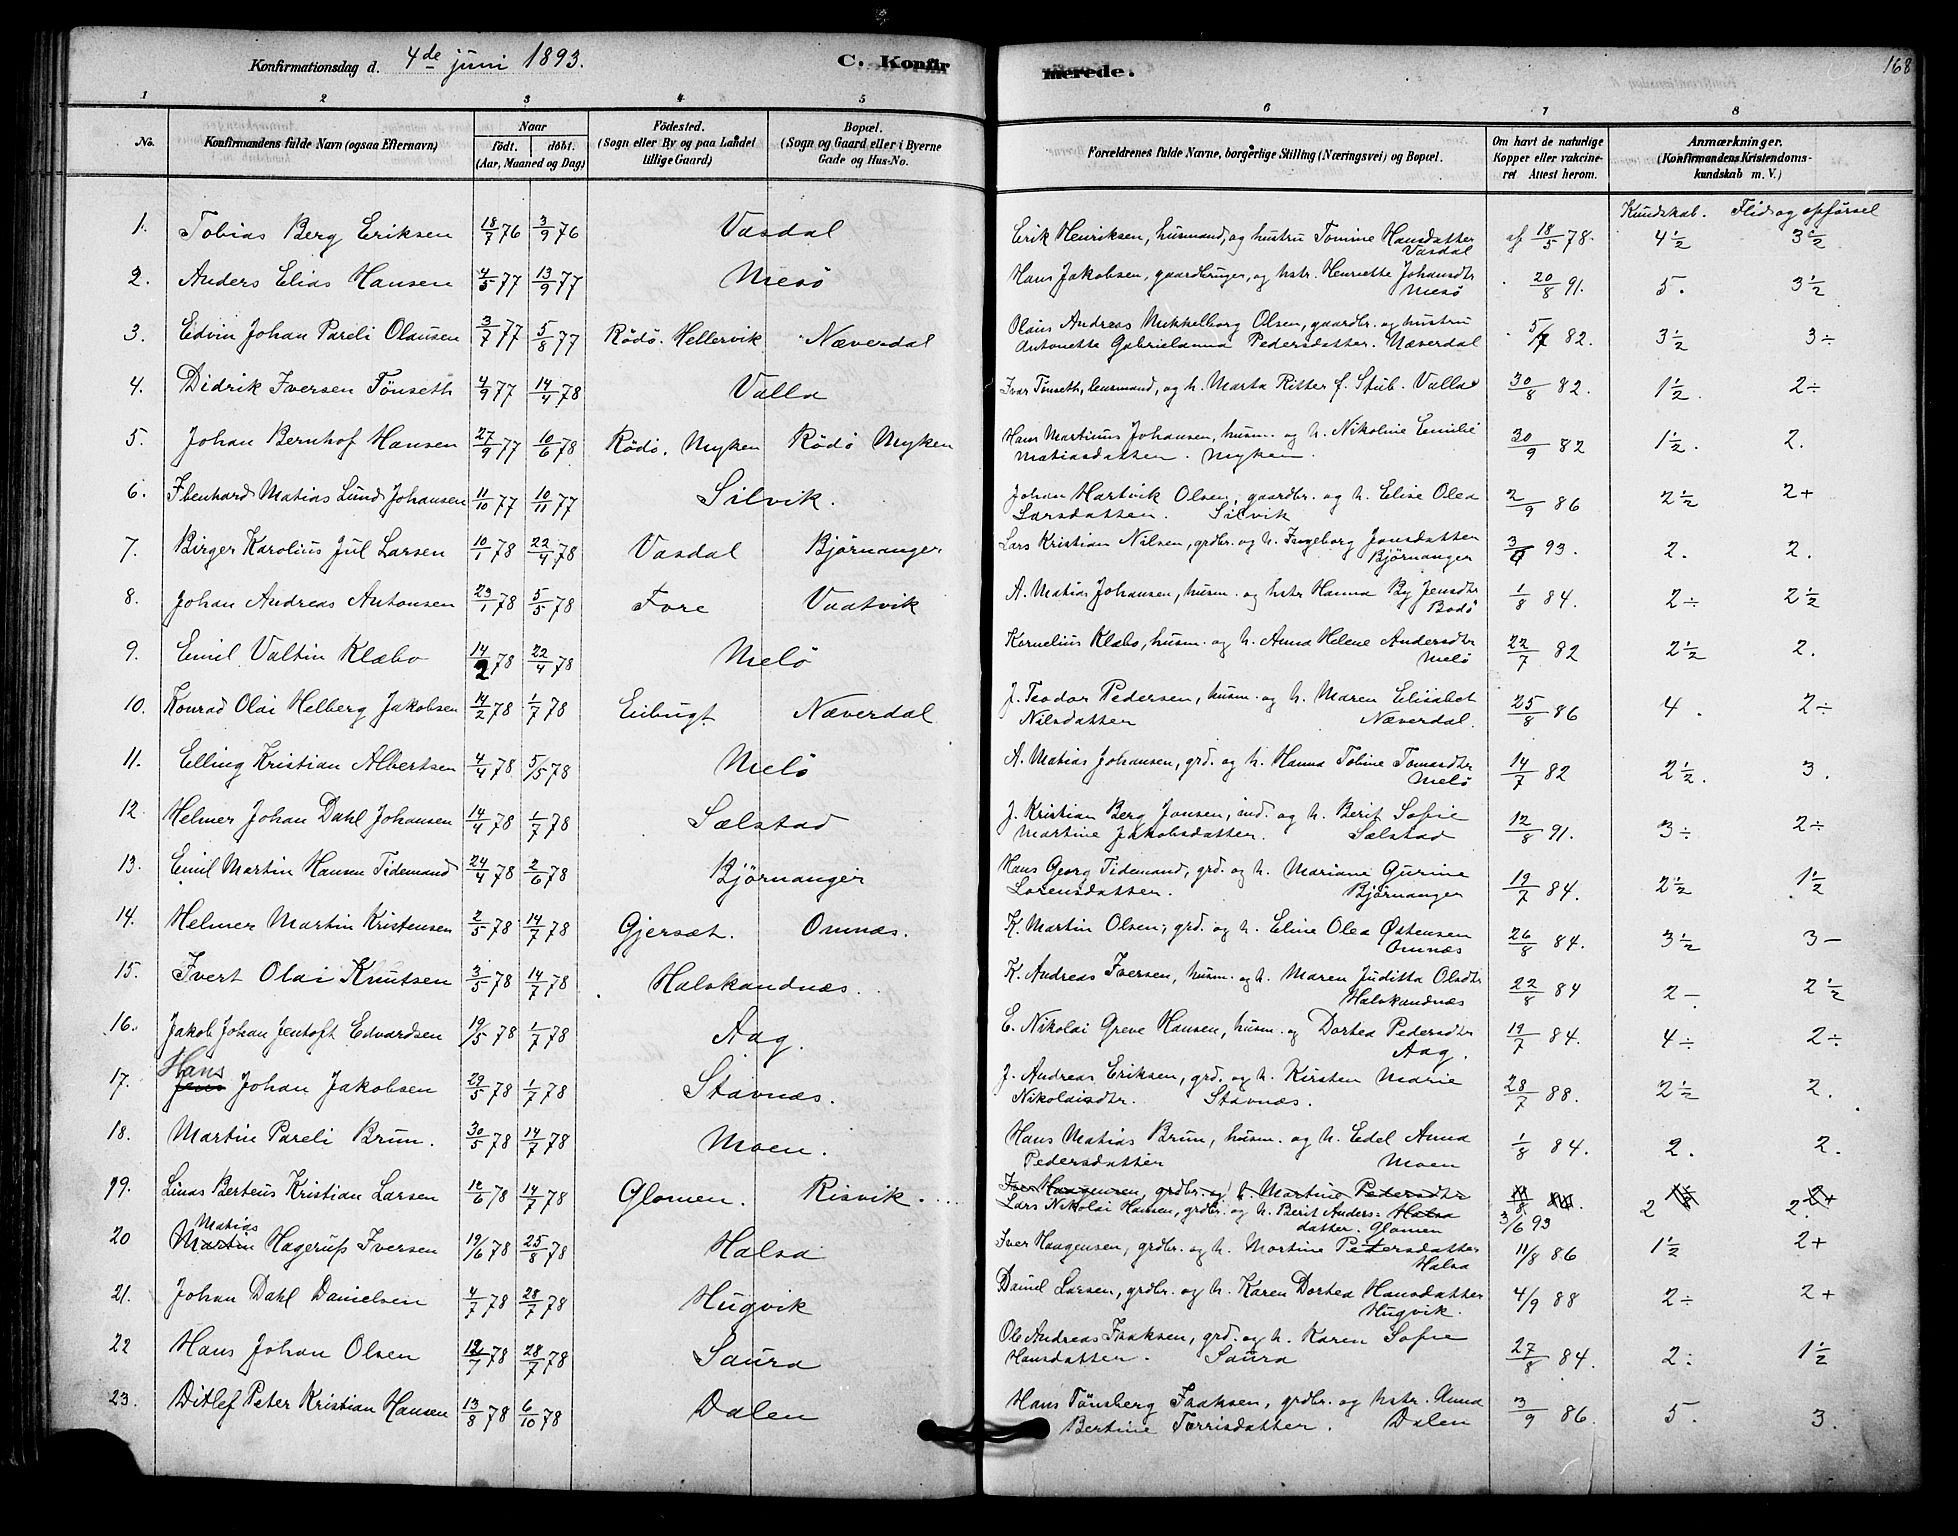 Konfirmationsdag d. 4de juni 1893.
C. Konfirmerede.
168
1 2 3 4 5 6 7 8
No.
Konfirmandens fulde Navn (ogsaa Efternavn)
Naar
født. døbt.
(Aar, Maaned og Dag)
Fødested.
(Sogn eller By og paa Landet
tillige Gaard)
Bopæl.
(Sogn og Gaard eller i Byerne
Gade og Hus-No.
Forældrenes fulde Navne, borgerlige Stilling (Næringsvei) og Bopæl.
Om havt de naturlige
Kopper eller vakcine-
ret Attest herom.
Anmærkninger.
(Konfirmandens Kristendoms-
kundskab m. V.)
Kundskab. Flid og opførsel
1. Tobias Berg Eriksen 18/7 76 3/9 76 Vasdal Erik Henriksen, husmand, og hustru Tomine Hansdatter af 18/5 78. 4 1/2 3 1/2
Vasdal
2. Anders Elias Hansen 4/5 77 13/9 77 Mesö Hans Jakobsen, gaardbruger, og hstr. Henriette Johansdtr 20/8 91. 5. 3 1/2
Mesö
3. Edvin Johan Pareli Olausen 3/7 77 5/8 77 Rödö. Hellervik Næverdal Olaus Andreas Mikkelborg Olsen, gaardbr. og hustru 5/7 82. 3 1/2 3÷
Antonette Gabrielanna Pedersdatter. Næverdal
4. Didrik Iversen Tönseth 4/9 77 14/4 78 Valla Ivar Tönseth, husmand, og h. Marta Ritter f. Stub. Valla 30/8 82. 1 1/2. 2÷
5. Johan Bernhof Hansen 27/9 77 10/6 78 Rödö, Myken Rödö Myken Hans Martinus Johansen, husm. og h. Nikoline Emilie 30/9 82 1 1/2. 2.
Matiasdatter. Myken.
6. Ebenhard Matias Lund Johansen 11/10 77 10/11 77 Silvik. Johan Hartvik Olsen, gaardbr. og h. Elise Olea 2/9 86 2 1/2 2+
Larsdatter. Silvik
7. Birger Karolius Jul Larsen 10/1 78 22/4 78 Vasdal Björnanger Lars Kristian Nilsen, grdbr. og h. Ingeborg Jonsdatter 93. 2. 2.
Björnanger
8. Johan Andreas Antonsen 23/1 78 5/5 78 Fore Vaatvik A. Matias Johansen, husm. og hstr Hanna By Jensdtr 1/8 84. 2÷ 2 1/2
Bodö
9. Emil Valtin Klæbo 14/2 78 22/4 78 Melö Kornelius Klæbo, husm. og h. Anna Helene Andersdtr 22/7 82 2 1/2 2.
Melö
10. Konrad Olai Helberg Jakobsen 14/2 78 1/7 78 Enbugt Næverdal J. Teodor Pedersen, husm. og h. Maren Elisabet 25/8 86 4. 2÷
Nilsdatter Næverdal.
11. Elling Kristian Albertsen 4/4 78 5/5 78 Melö A. Matias Johansen, grd. og h. Hanna Tobine Tomasdtr 14/7 82 2 1/2. 3.
Melö
12. Helmer Johan Dahl Johansen 14/4 78 1/7 78 Sælstad J. Kristian Berg Jonsen, ind. og h. Berit Sofie 12/8 91. 3÷ 2÷
Martine Jakobsdatter. Sælstad
13. Emil Martin Hansen Tidemand 24/4 78 2/6 78 Björnanger Hans Georg Tidemand, grd. og h. Mariane Gurine 19/7 84. 2 1/2 1 1/2
Lorensdatter. Björnanger
14. Helmer Martin Kristensen 2/5 78 14/7 78 Gjersæt. Omnæs. K. Martin Olsen, grd. og h. Eline Olea Østensen 26/8 84. 3 1/2 3-
Omnæs
15. Ivert Olai Knutsen 3/5 78 14/7 78 Halskandnæs. K. Andreas Iversen, husm. og h. Maren Juditta Olsdtr 22/8 84 2-. 2 1/2
Halskandnæs
16. Jakob Johan Jentoft Edvardsen 19/5 78 1/7 78 Aag. E. Nikolai Greve Hansen, husm. og Dortea Pedersdtr 19/7 84. 4÷ 2÷
Aag.
17. Hans Jens Johan Jakobsen 29/5 78 1/7 78 Stavnæs. J. Andreas Eriksen, grd. og h. Kirsten Marie 28/7 88. 2 1/2 2.
Nikolaisdtr. Stavnæs.
18. Martin Pareli Brun. 30/5 78 14/7 78 Moen. Hans Matias Brun, husm. og h. Edel Anna 1/8 84. 2. 2.
Pedersdatter Moen
19. Linas Berteus Kristian Larsen 12/6 78 14/7 78 Glomen. Risvik. Iver Haagensen, grdbr. og h. Martine Pedersdtr
Lars Nikolai Hansen, grdbr. og h. Berit Anders- Halsa 3/6 93 2 2.
datter. Glomen
20 Matias Martin Hagerup Iversen 19/6 78 25/8 78 Halsa Iver Haagensen, grdbr. og h. Martine Petersdatter 11/8 86 1 1/2 2+
Halsa
21. Johan Dahl Danielsen 4/7 78 28/7 78 Hugvik Daniel Larsen, grdbr. og h. Karen Dortea Hansdatter 4/9 88 2÷ 2+
Hugvik.
22 Hans Johan Olsen 12/7 78 28/7 78 Saura Ole Andreas Isaksen, grd. og h. Karen Sofie 27/8 84. 2: 1 1/2
Hansdatter. Saura
23. Ditlef Peter Kristian Hansen 13/8 78 6/10 78 Dalen Hans Tönsberg Isaksen, grdbr. og hstr. Anna 3/9 86. 5. 3.
Bertine Torrisdatter. Dalen